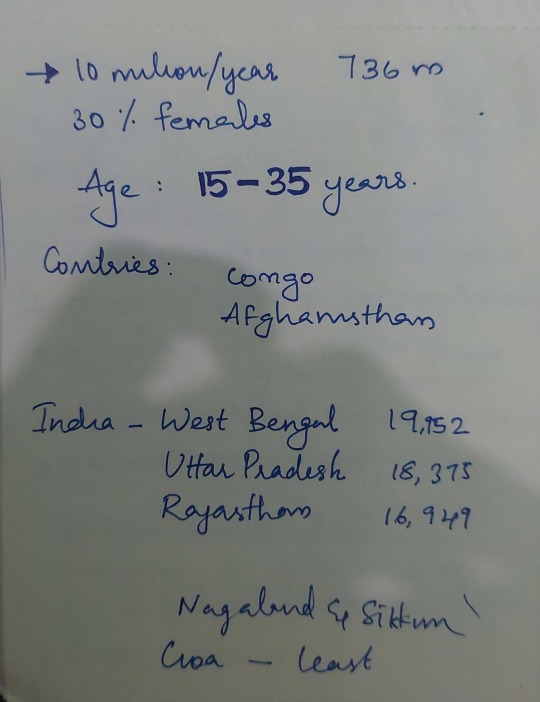 → 10 million/year 736 m
30 % females
Age : 15-35 years.
Contries: Congo
Afghanisthan
India - West Bengal 19,952
Uttar Pradesh 18,375
Rajasthan 16,949
Nagaland & Sikkim
Goa - least